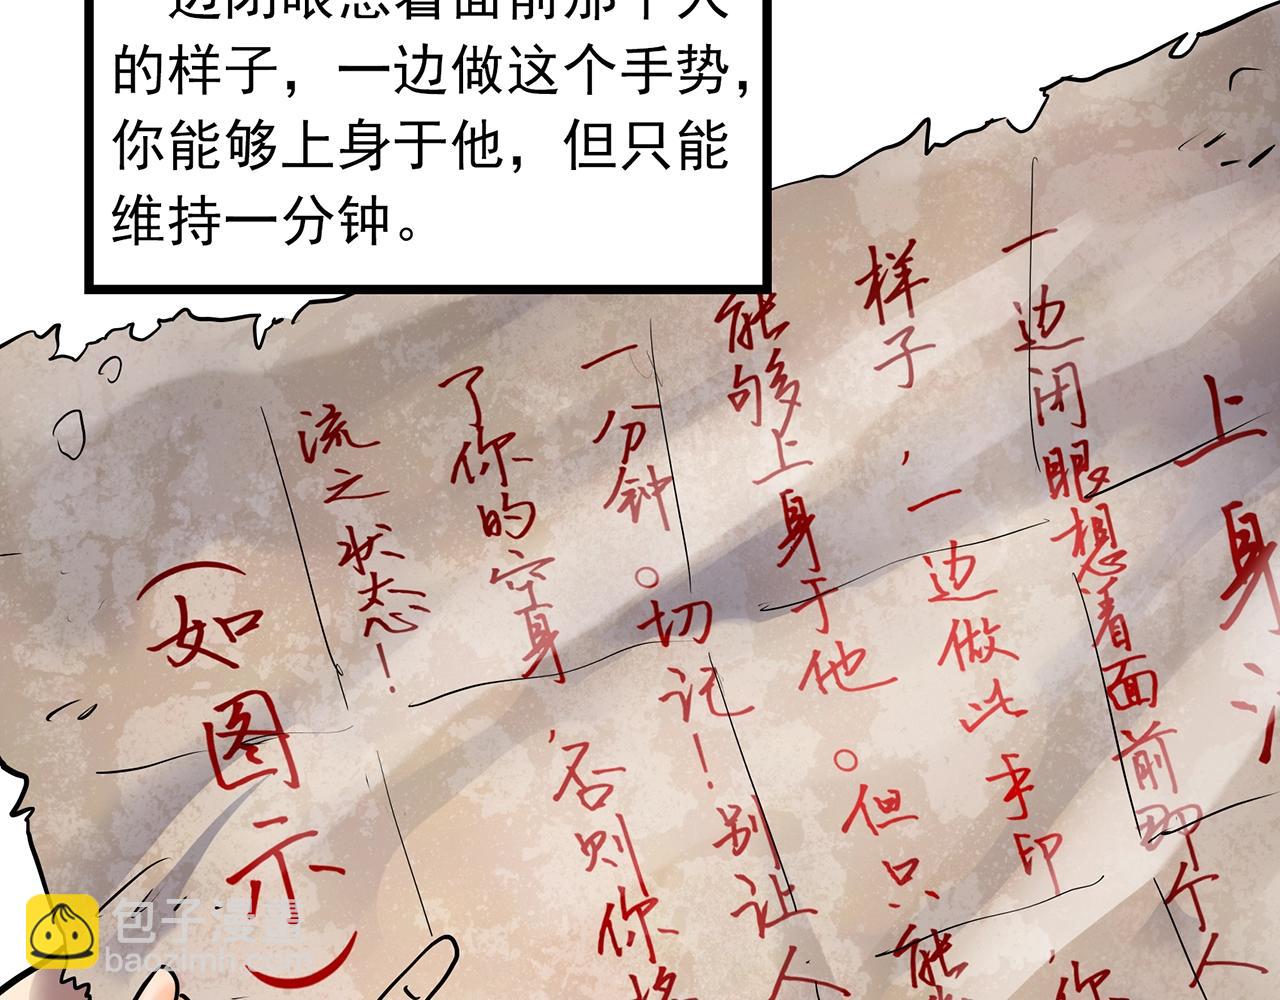 一边闭眼想着面前那个人
的样子，一边做这个手势，
你能够上身于他，但只能
维持一分钟。
上身
一边闭眼想着面前那个人
样子，一边做此手印
能够上身于他。但只能
一分钟。切记！别让人
了你的穷身，否则你将
流之状态！
（如图示）
包子漫画
baozimh.com